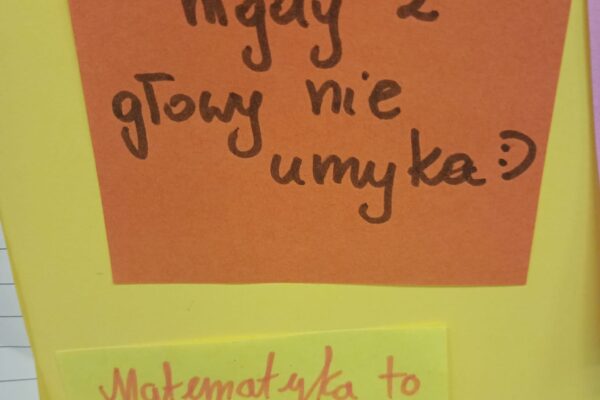 nigdy z
głowy nie
umyka :)
Matematyka to